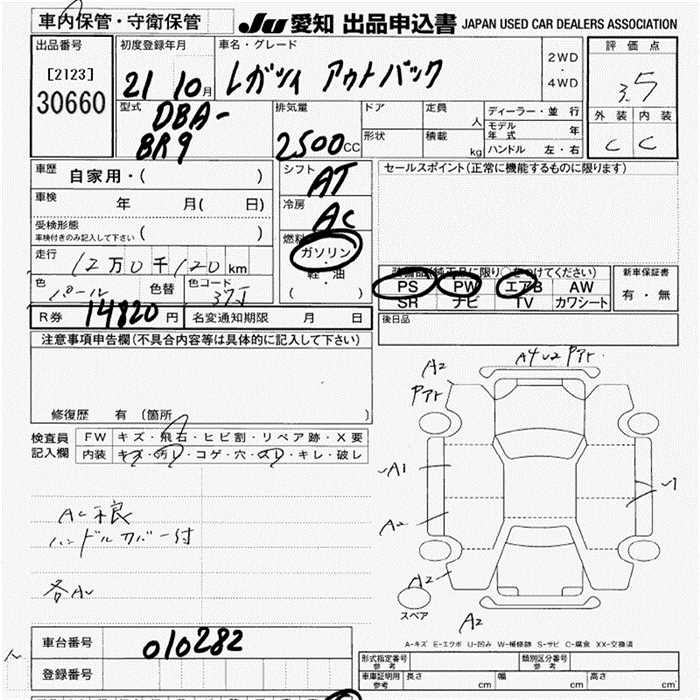 車内保管・守衛保管
JU 愛知 出品申込書 JAPAN USED CAR DEALERS ASSOCIATION
出品番号
[2123]
30660
初度登録年月
21 10月
車名・グレード
レガツィ アウトバック
2WD
・
4WD
評価点
3.5
外装 内装
C C
型式
DBA-
BR9
排気量
2500CC
ドア 定員 人
形状 積載 kg
ディーラー・並 行
モデル年式 年
ハンドル 左・右
車歴 自家用・( )
車検 年 月( 日)
受検形態
車検付きのみ記入して下さい ( )
走行 12万0千120km
色 パール 色替 色コード 37J
シフト
AT
冷房
AC
燃料
ガソリン
軽・油
( )
セールスポイント(正常に機能するものに限ります)
PS PW エアB AW
SR ナビ TV カワシート
新車保証書
有・無
R券 14820円 名変通知期限 月 日
後日品
注意事項申告欄(不具合内容等は具体的に記入して下さい)
修復歴 有 〔箇所 〕
検査員 FW キズ・飛石・ヒビ割・リペア跡・X要
記入欄 内装 キズ・汚レ・コゲ・穴・スレ・キレ・破レ
AC不良
ハンドルカバー付
A2
A2
A1
A2
スペア
A-キズ E-エクボ U-凹み W-補修跡 S-サビ C-腐食 XX-交換済
車台番号 010282
登録番号
形式指定番号 参考 類別区分番号 参考
車庫証明用 参考 長さ cm 幅 cm 高さ cm